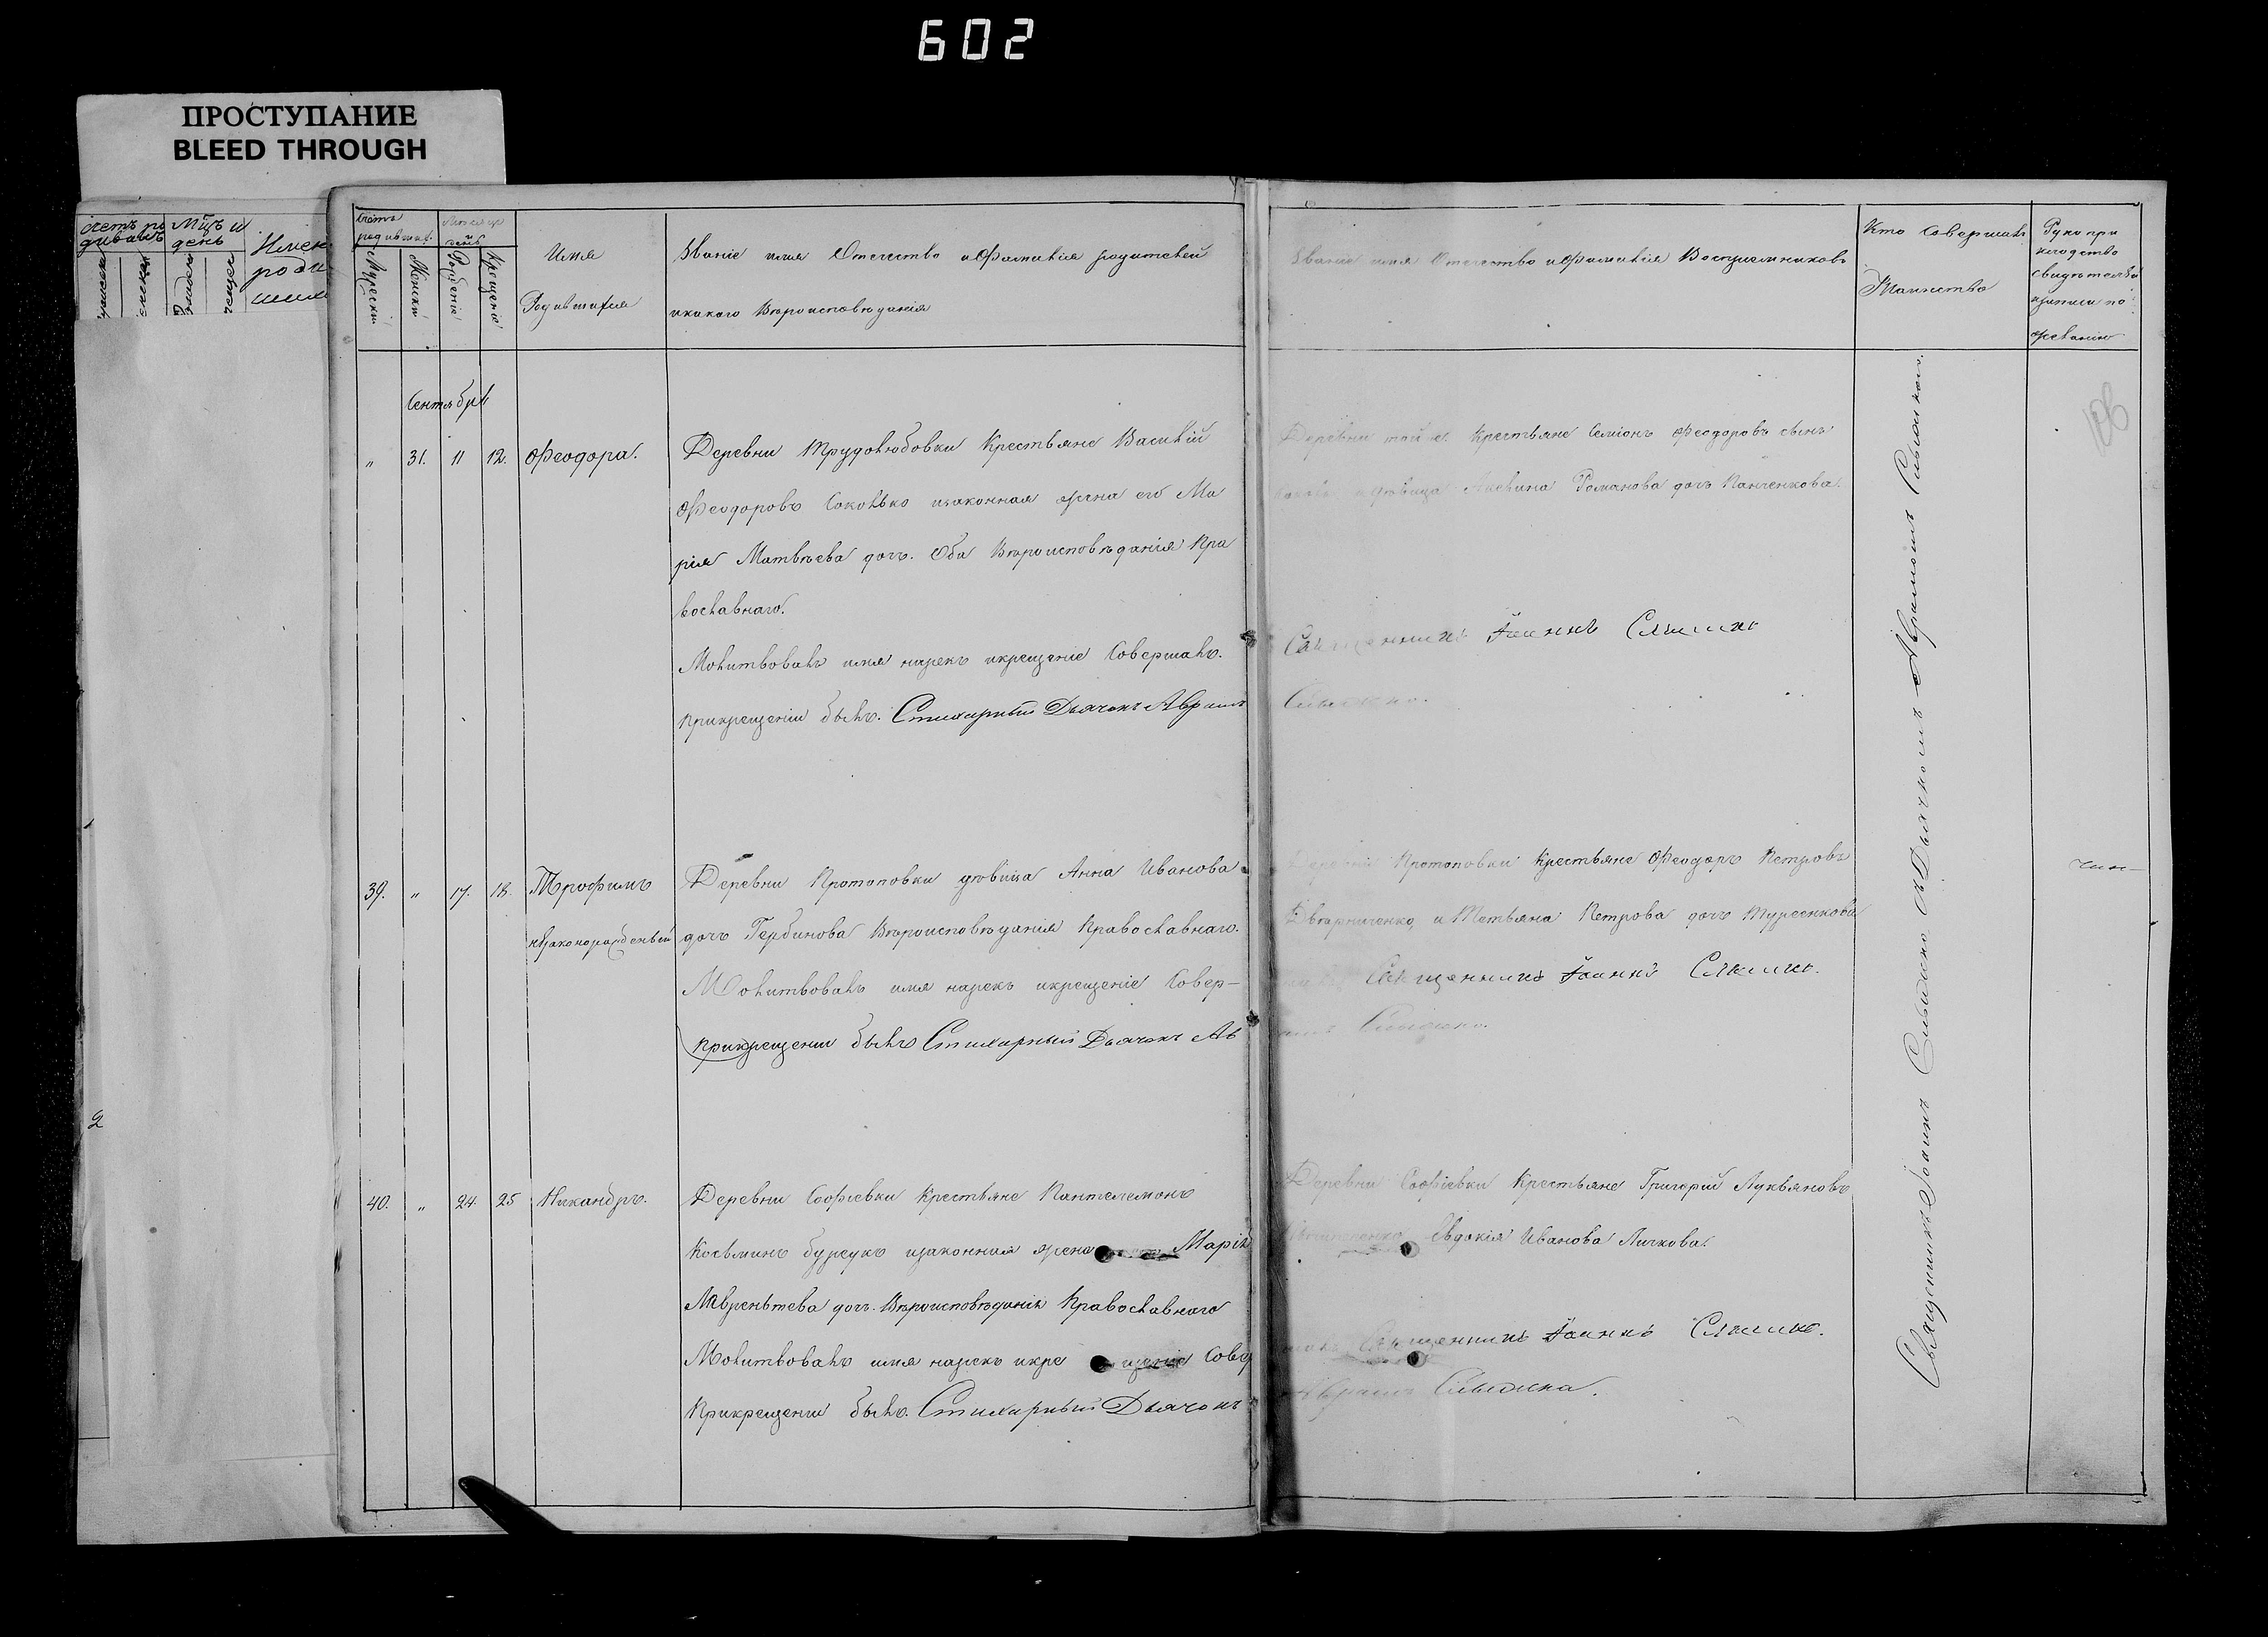 602
ПРОСТУПАНИЕ
BLEED THROUGH
Мцъ и
день
Имен
роди
Счетъ
родивших.
Мужеск.
Женск.
Рожденія
Крещенія
Имя
Родившихся
Званіе имя Отечество и Фамилія родителей
и какого Вѣроисповѣданія
Званіе имя Отечество и Фамилія Воспріемниковъ
Кто Совершалъ
Таинство
Руко при
кладство
свидѣтелей
записи по
желанію
Сентябрь
108
" 31. 11 12. Феодора.
Деревни Трудолюбовки Крестьяне Василій
Феодоровъ Соколько и законная жена его Ма
рія Матвѣева дочь. Оба Вѣроисповѣданія Пра
вославнаго.
Молитвовалъ имя нарекъ и крещеніе Совершалъ.
При крещеніи былъ. Стихарный Дьячокъ Аврамъ
Деревни той же Крестьяне Семіонъ Феодоровъ сынъ
дѣвица Акелина Романова дочь Панченкова.
Священникъ Іоаннъ
39. " 17. 18. Трофимъ
незаконорожденный
Деревни Протоповки дѣвица Анна Иванова
дочь Гербинова Вѣроисповѣданія Православнаго.
Молитвовалъ имя нарекъ и крещеніе Совер-
При крещеніи былъ Стихарный Дьячокъ Ав
Деревни Протоповки Крестьяне Феодоръ Петровъ
Дворниченко, и Татьяна Петрова дочь Туреенкова
Священникъ Іоаннъ
40. " 24. 25 Никандръ.
Деревни Софіевки Крестьяне Пантелемонъ
Косьминъ Бурсукъ и законная жена Марія
Лаврентева дочь. Вѣроисповѣданія Православнаго
Молитвовалъ имя нарекъ и кре щеніе Совер
При крещеніи былъ. Стихарный Дьячокъ
Деревни Софіевки Крестьяне Григорий Лукьяновъ
Евдокія Иванова Личкова.
Священникъ Іоаннъ
Аврамъ
Священникъ Іоаннъ съ Дьячкомъ Аврамомъ
2